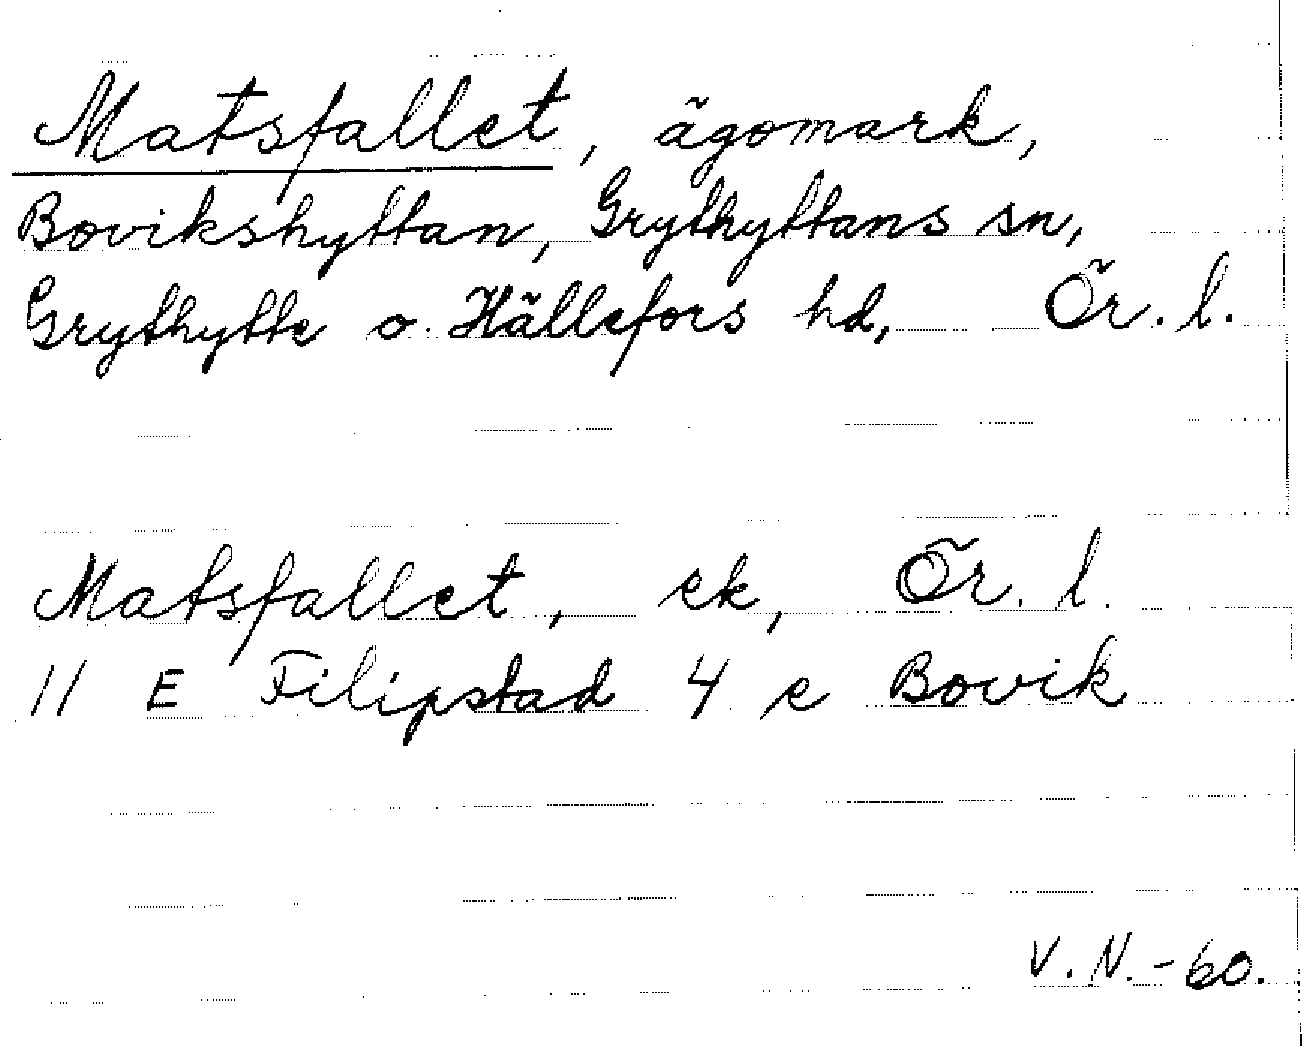 Matsfallet, ägomark,
Bovikshyttan, Grythyttans sn,
Grythytte o. Hällefors hd, Ör. l.
Matsfallet, ek, Ör. l.
11 E Filipstad 4 e Bovik
V. N. - 60.